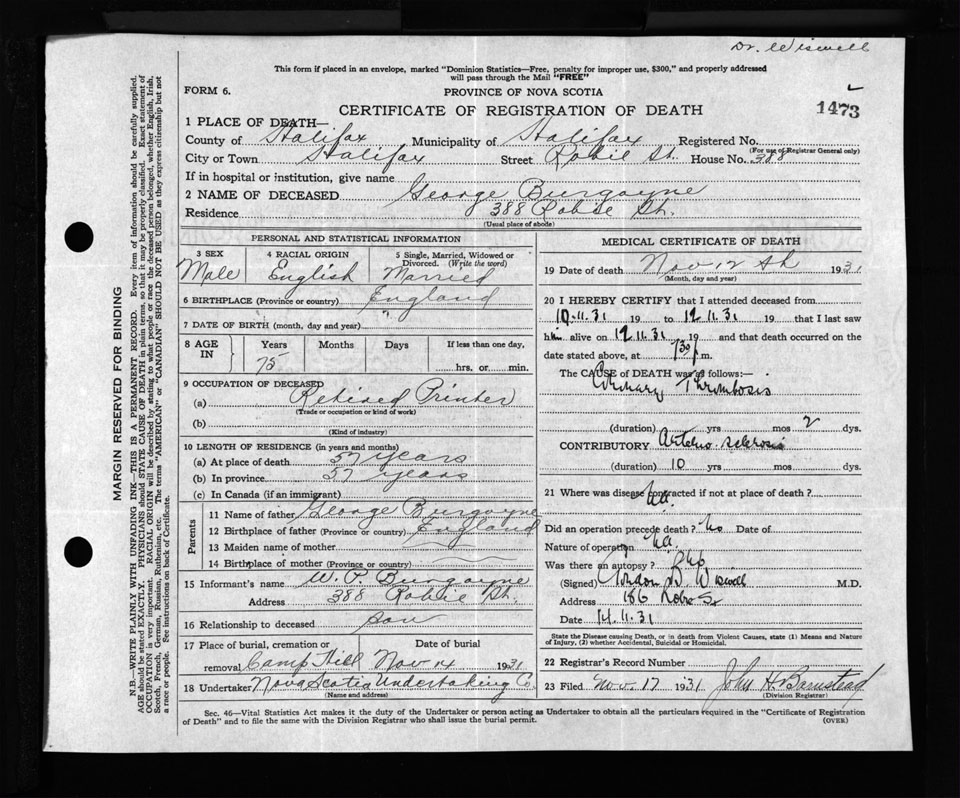 Dr. Wiswell
This form if placed in an envelope, marked "Dominion Statistics—Free, penalty for improper use, $300," and properly addressed
will pass through the Mail "FREE"
FORM 6.
PROVINCE OF NOVA SCOTIA
CERTIFICATE OF REGISTRATION OF DEATH
1473
1 PLACE OF DEATH—
County of Halifax Municipality of Halifax Registered No.
(For use of Registrar General only)
City or Town Halifax Street Robie St. House No. 388
If in hospital or institution, give name
2 NAME OF DECEASED George Burgoyne
Residence 388 Robie St.
(Usual place of abode)
PERSONAL AND STATISTICAL INFORMATION
3 SEX Male
4 RACIAL ORIGIN English
5 Single, Married, Widowed or Divorced. (Write the word) Married
6 BIRTHPLACE (Province or country) England
7 DATE OF BIRTH (month, day and year) "
8 AGE IN Years Months Days If less than one day,
75 hrs. or min.
9 OCCUPATION OF DECEASED
(a) Retired Printer
(Trade or occupation or kind of work)
(b)
(Kind of industry)
10 LENGTH OF RESIDENCE (in years and months)
(a) At place of death 57 years
(b) In province 57 years
(c) In Canada (if an immigrant)
Parents
11 Name of father George Burgoyne
12 Birthplace of father (Province or country) England
13 Maiden name of mother
14 Birthplace of mother (Province or country)
15 Informant's name W. P. Burgoyne
Address 388 Robie St.
16 Relationship to deceased son
17 Place of burial, cremation or removal Camp Hill Date of burial Nov 14 1931
18 Undertaker Nova Scotia Undertaking Co.
(Name and address)
MEDICAL CERTIFICATE OF DEATH
19 Date of death Nov 12th 1931
(Month, day and year)
20 I HEREBY CERTIFY that I attended deceased from
10.11.31 19 to 12.11.31 19 that I last saw
him alive on 12.11.31 19 and that death occurred on the
date stated above, at 730 p m.
The CAUSE of DEATH was as follows:—
Coronary Thrombosis
(duration) yrs mos 2 dys.
CONTRIBUTORY Arterio-sclerosis
(duration) 10 yrs mos dys.
21 Where was disease contracted if not at place of death?
Did an operation precede death? No Date of
Nature of operation
Was there an autopsy? No
(Signed) Gordon B. Wiswell M.D.
Address 186 Robie St
Date 14.11.31
State the Disease causing Death, or in death from Violent Causes, state (1) Means and Nature
of Injury, (2) whether Accidental, Suicidal or Homicidal.
22 Registrar's Record Number
23 Filed Nov. 17 1931 John H Barnstead
(Division Registrar)
Sec. 46—Vital Statistics Act makes it the duty of the Undertaker or person acting as Undertaker to obtain all the particulars required in the "Certificate of Registration
of Death" and to file the same with the Division Registrar who shall issue the burial permit. (OVER)
MARGIN RESERVED FOR BINDING
N.B.—WRITE PLAINLY WITH UNFADING INK—THIS IS A PERMANENT RECORD. Every item of information should be carefully supplied.
AGE should be stated EXACTLY. PHYSICIANS should STATE CAUSE OF DEATH in plain terms, so that it may be properly classified. Exact statement of
OCCUPATION is very important. RACIAL ORIGIN will be described by stating to what people or race the deceased person belonged, whether English, Irish,
Scotch, French, German, Russian, Ruthenian, etc. The terms "AMERICAN" or "CANADIAN" SHOULD NOT BE USED as they express citizenship but not
a race or people. See instructions on back of Certificate.